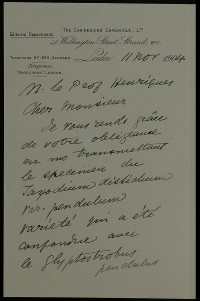 THE GARDENERS' CHRONICLE, LTD
Editorial Department.
41 Wellington Street, Strand, W.C.
Telegrams
"GARDCHRON" LONDON.
London 11 Nov 1904
M. le Prof Henriques
Cher Monsieur
Je vous rends grâce
de votre obligeance
en me transmettant
le specimen du
Taxodium distichum
var. pendulum
variété qui a été
confondue avec
le Glyptostrobus
pendulus